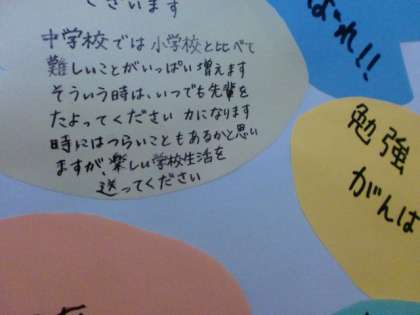 ございます
中学校では小学校と比べて
難しいことがいっぱい増えます
そういう時は、いつでも先輩を
たよってください 力になります
時にはつらいこともあるかと思い
ますが、楽しい学校生活を
送ってください
ばれ!!
勉強
がんば